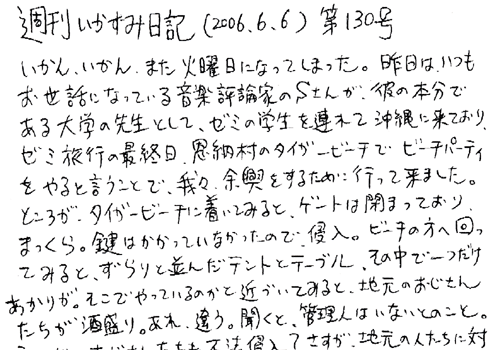 週刊いかすみ日記(2006.6.6) 第130号
いかん、いかん、また火曜日になってしまった。昨日は、いつも
お世話になっている音楽評論家のSさんが、彼の本分で
ある大学の先生として、ゼミの学生を連れて沖縄に来ており、
ゼミ旅行の最終日、恩納村のタイガービーチでビーチパーティ
をやると言うことで、我々、余興をするために行って来ました。
ところが、タイガービーチに着いてみると、ゲートは閉まっており、
まっくら。鍵はかかっていなかったので、侵入。ビーチの方へ回っ
てみると、ずらりと並んだテントとテーブル、その中で一つだけ
あかりが。そこでやっているのかと近づいてみると、地元のおじさん
たちが酒盛り。あれ、違う。聞くと、管理人はいないとのこと。
不法侵入ですが、地元の人たちに対